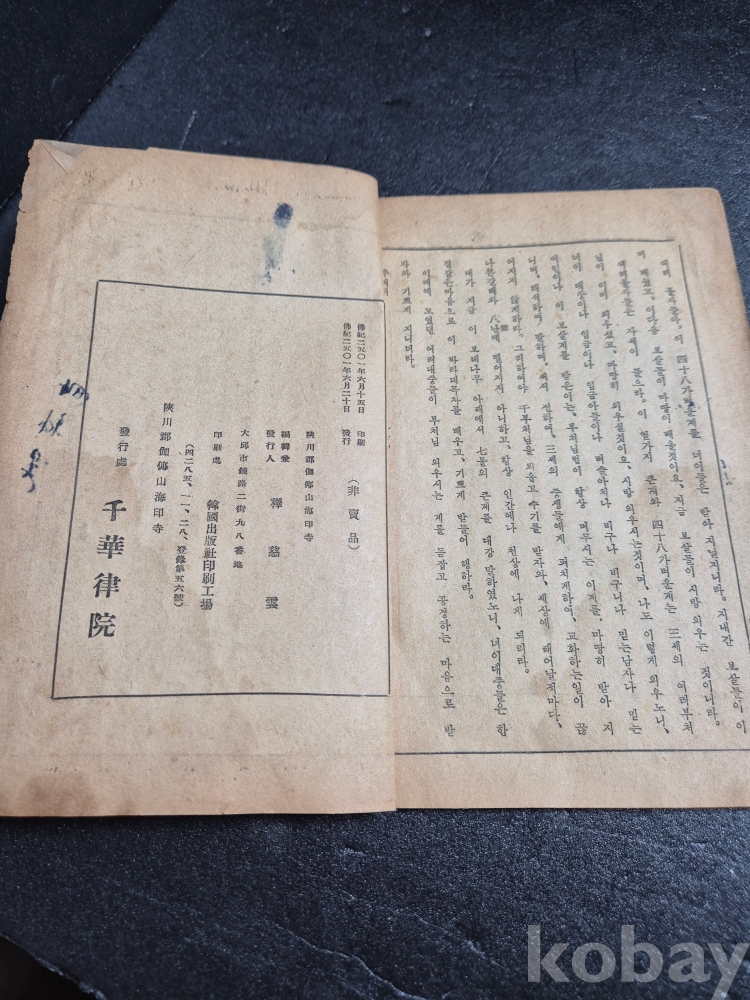 여며 불자들아, 이 四十八가벼운계를 너이들은 받아 지닐지니라. 지내간 보살들이 이
며 배웠고, 이다음 보살들이 마땅이 배울것이요, 지금 보살들이 시방 외우는 것이니라.
여며불자들은 자세이 들으라. 이 열가지 큰계와 四十八가벼운계는 三세의 여러부처
님이 이미 외우섰고, 마땅히 외우실것이요, 시방 외우시는것이며, 나도 이렇게 외우노니,
너이 대중이나 임금이나 임금아들이나 벼슬아치나 비구나 비구니나 믿는남자나 믿는
여인이나 이 보살계를 받은이는, 부처님법이 항상 머무시는 이계를, 마땅히 받아 지
니며, 해석하여 말하며, 써서 전하여, 三세의 중생들에게 펴치게하여, 교화하는일이 끊
어지지 않게하라. 그리하여야 千부처님을 뵈옵고 수기를 받자와, 세상에 태어날적마다,
나쁜갈래와 八난에 떨어지지 아니하고, 항상 인간에나 천상에 나게 되리라.
내가 지금 이 보리나무 아래에서 七불의 큰계를 대강 말하였노니, 너이대중들은 한
결같은마음으로 이 바라제목차를 배우고, 기쁘게 받들어 행하라.
이때에 모였던 여러대중들이 부처님 외우시는 계를 듣잡고 공경하는 마음으로 받
자와 기쁘게 지니더라.
佛紀二五〇一年六月十五日 印刷
佛紀二五〇一年六月二十日 發行
(非賣品)
陜川郡伽倻山海印寺
編輯兼
發行人 釋慈雲
大邱市 二街九八番地
印刷處 韓國出版社印刷工場
(四二八五、一一、二八、登錄第五六號)
陜川郡伽倻山海印寺
發行處 千華律院
kobay